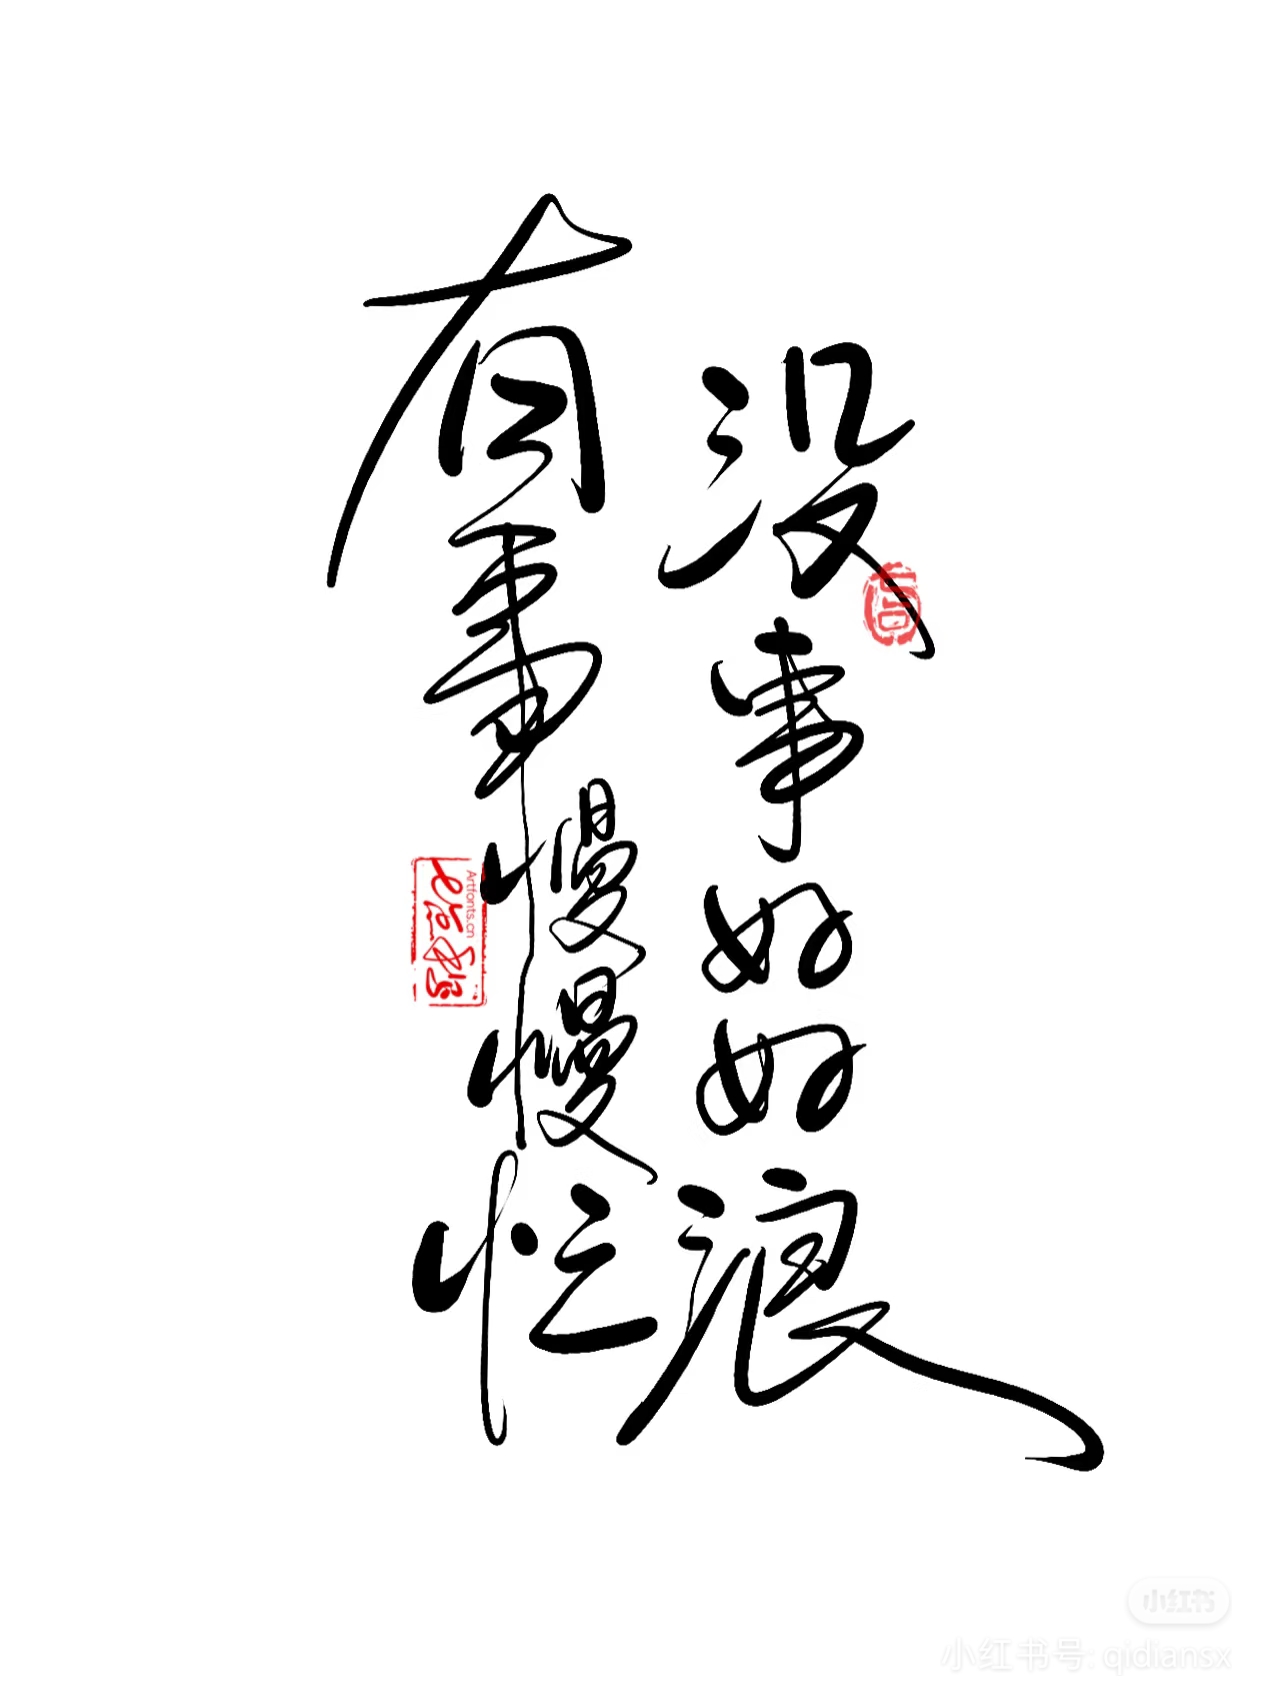 没事好好浪
有事慢慢忙
Artfonts.cn
小红书
小红书号: qidiansx